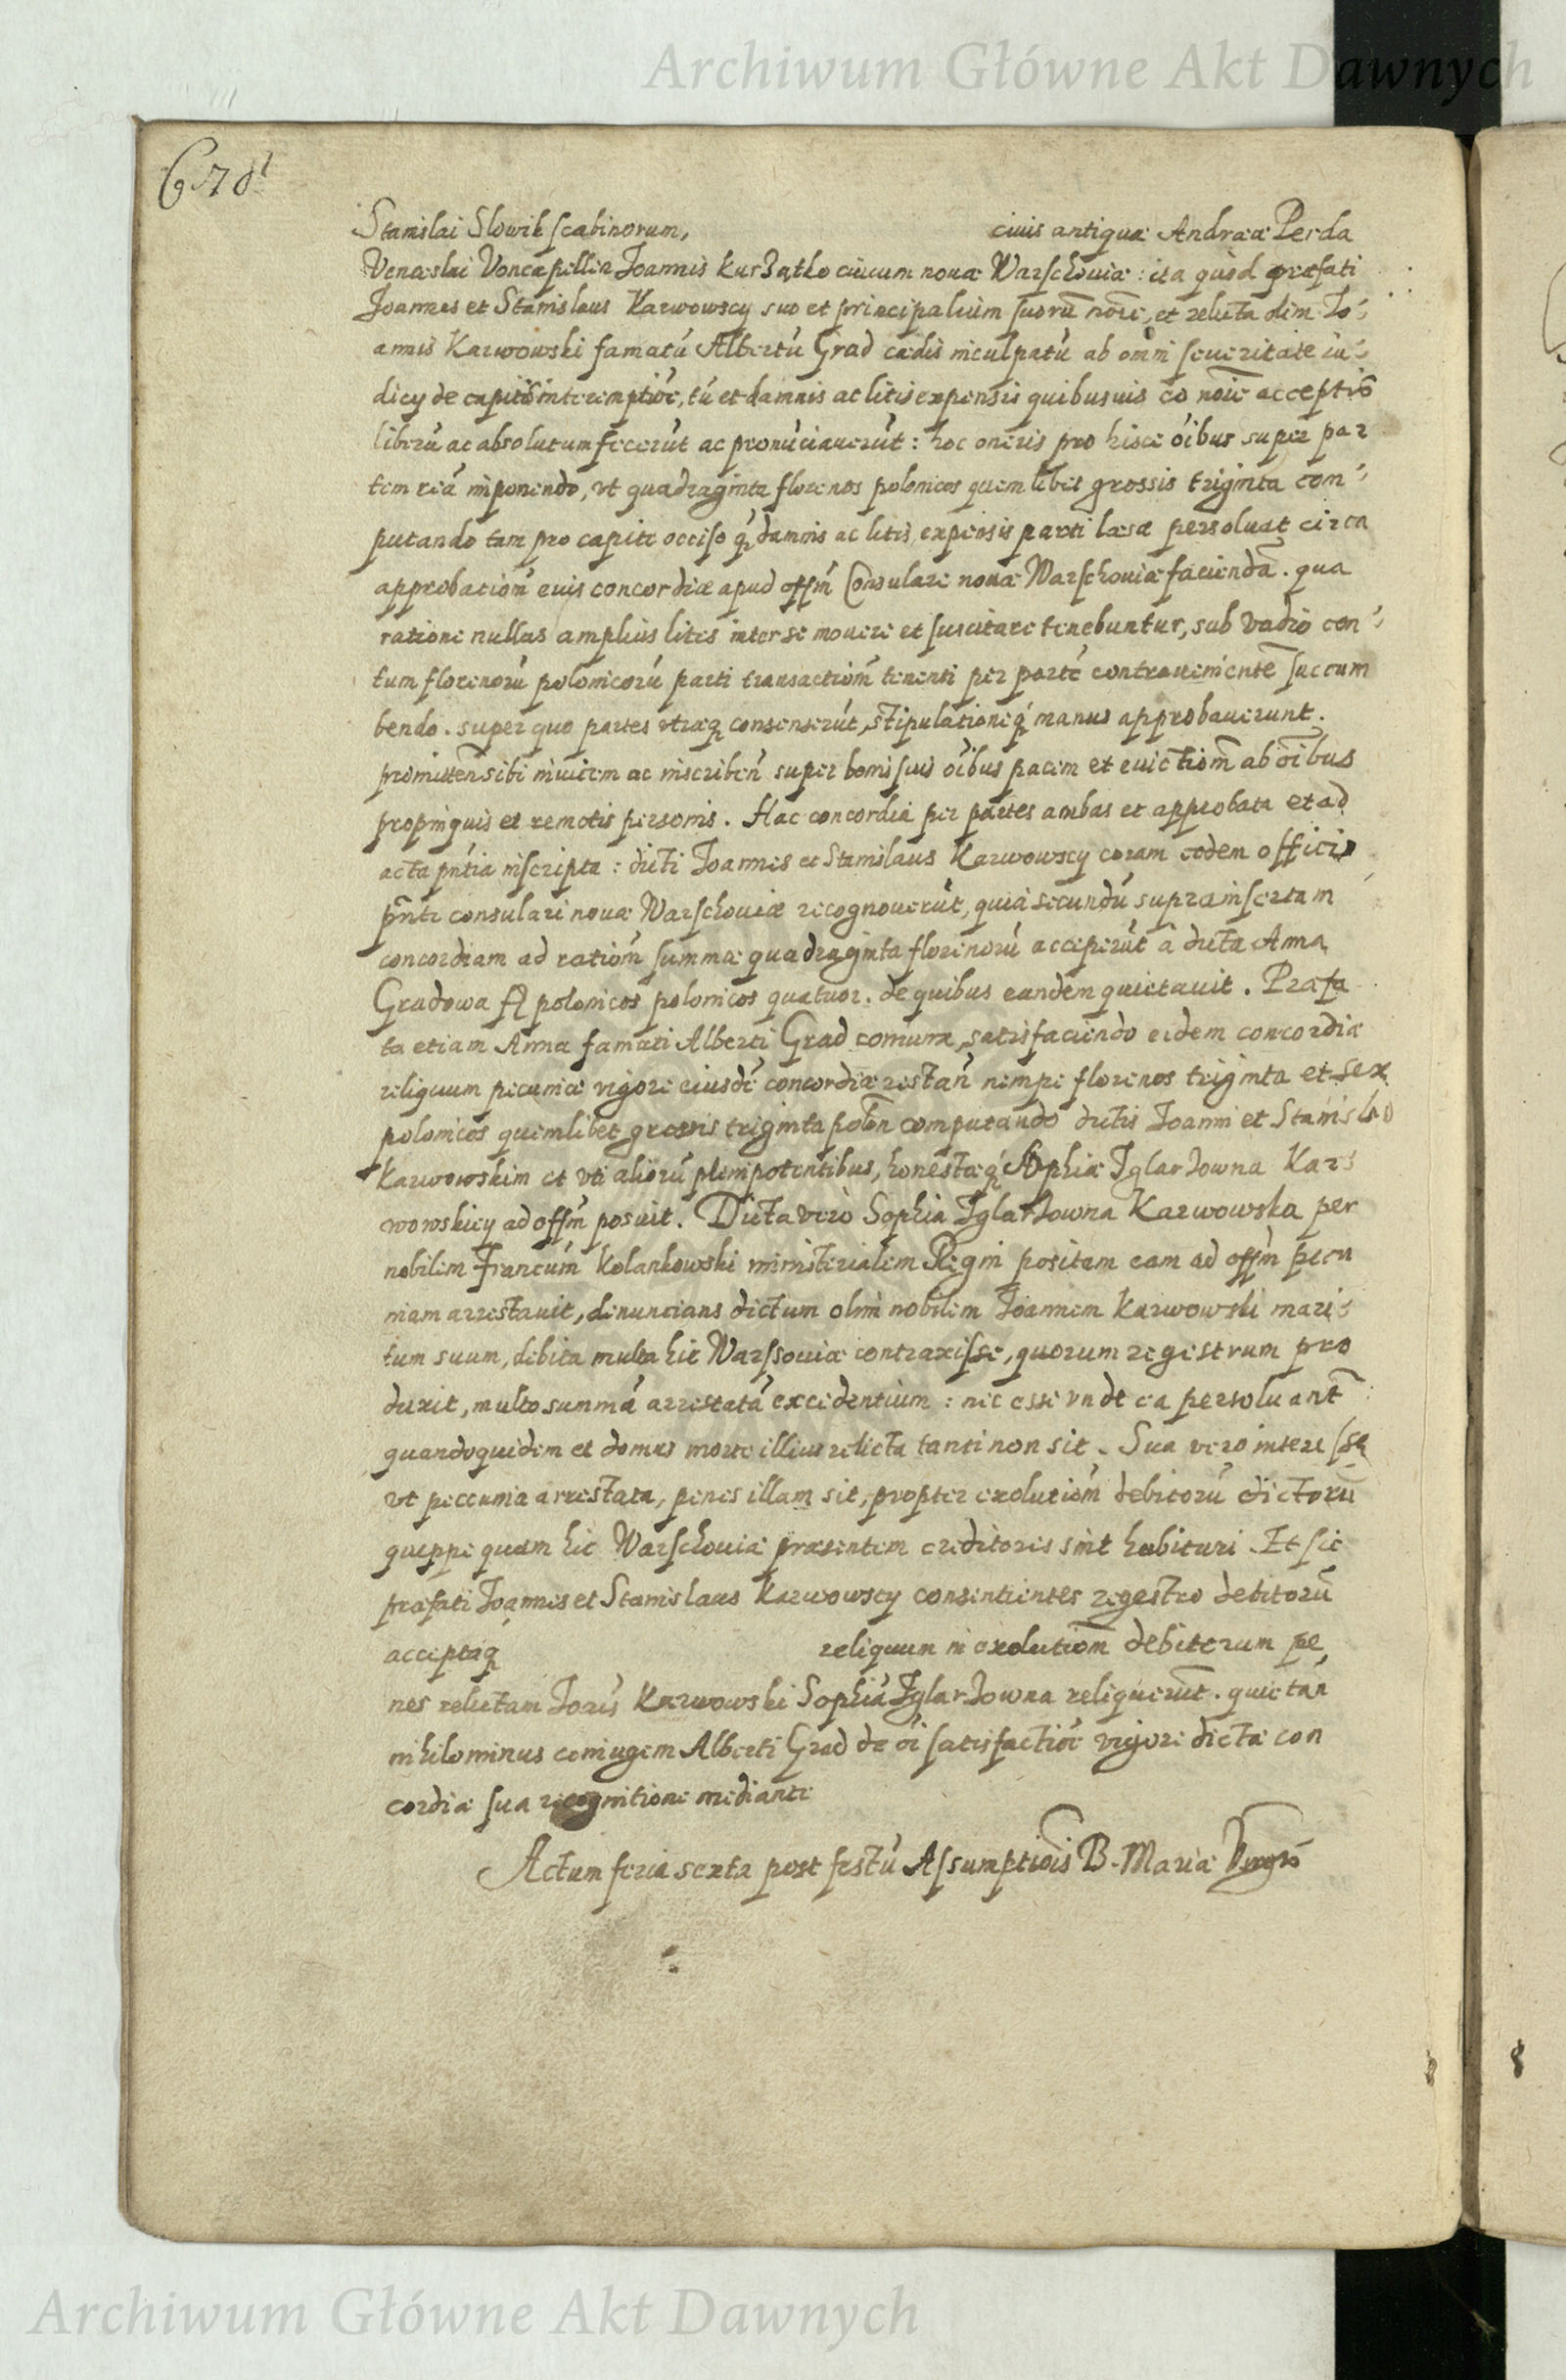 Archiwum Główne Akt Dawnych
670
Stanislai Slowik scabinorum, ciuis antiquæ Andreæ Perda
Venceslai Voncapellen Joannis kurzątko ciuium nouæ Warschouiæ : ita quod præfati
Joannes et Stanislaus Karwowscy suo et principalium suorũ noie, et relicta olim Jo-
annis Karwowski famatũ Albertũ Grad cædis inculpatũ ab omni seueritate iu-
dicÿ de capitis interemptioe, tũ et damnis ac litis expensis quibusuis eo noie acceptis
liberũ ac absolutum fecerũt ac pronũciauerũt : hoc oneris pro hisce oibus super par
tem reã imponendo, vt quadraginta florenos polonicos quemlibet grossis triginta com-
putando tam pro capite occiso q, damnis ac litis expensis parti læsæ persoluat circa
approbationẽ euis concordiæ apud offm Consulare nouæ Warschouiæ faciendã. qua
ratione nullas amplius lites inter se mouere et suscitare tenebuntur, sub vadio cen-
tum florenorũ polonicorũ parti transactionẽ tenenti per partẽ contrauenientẽ succum
bendo. super quo partes vtræq consenserũt, stipulationeq manus approbauerunt.
promitten sibi inuicem ac inscriben super bonis suis oibus pacem et euictionẽ ab oibus
propinquis et remotis personis. Hac concordia per partes ambas et approbata et ad
acta pntia inscripta : dicti Joannes et Stanislaus Karwowscy coram eodem officio
pnti consulari nouæ Warschouiæ recognouerũt, quia secundũ suprainsertam
concordiam ad rationẽ summæ quadraginta florenorũ acceperũt a dicta Anna
Gradowa fl polonicos polonicos quatuor. de quibus eandem quietauit. Præfa
ta etiam Anna famati Alberti Grad coniunx, satisfaciendo eidem concordiæ
reliquum pecuniæ vigore eiusdẽ concordiæ restan nempe florenos triginta et sex
polonicos quemlibet grossis triginta polon computando dictis Joanni et Stanislao
Karwowskim et vti aliorũ plenipotentibus, honestæq Sophiæ Jglarzowna Kar-
wowskiey ad offm posuit. Dicta vero Sophia Jglarzowna Karwowska per
nobilem Francum Kolankowski ministerialem Regni positam eam ad offm pecu
niam arrestauit, denuncians dictum olim nobilem Joannem Karwowski mari-
tum suum, debita multa hic Warssouiæ contraxisse, quorum regestrum pro
duxit, multo summã arrestatã excedentium : nec esse vnde ea persoluant
quandoquidem et domus morte illius relicta tanti non sit. Sua vero interesse
vt peccunia arrestata, penes illam sit, propter exolutionẽ debitorũ dictorũ
queppe quam hic Warschouiæ præsentem creditores sint habituri. Et sic
præfati Joannes et Stanislaus Karwowscy consentientes regestro debitorũ
acceptaq reliquum in exolutionẽ debitorum pe
nes relictam Joñis Karwowski Sophiã Jglarzowna reliquerũt. quietan
nihilominus coniugem Alberti Grad de oi satisfactioe vigore dictæ con
cordiæ sua recognitione mediante
Actum feria sexta post festũ Assumptiois B. Mariæ Virgis
Archiwum Główne Akt Dawnych